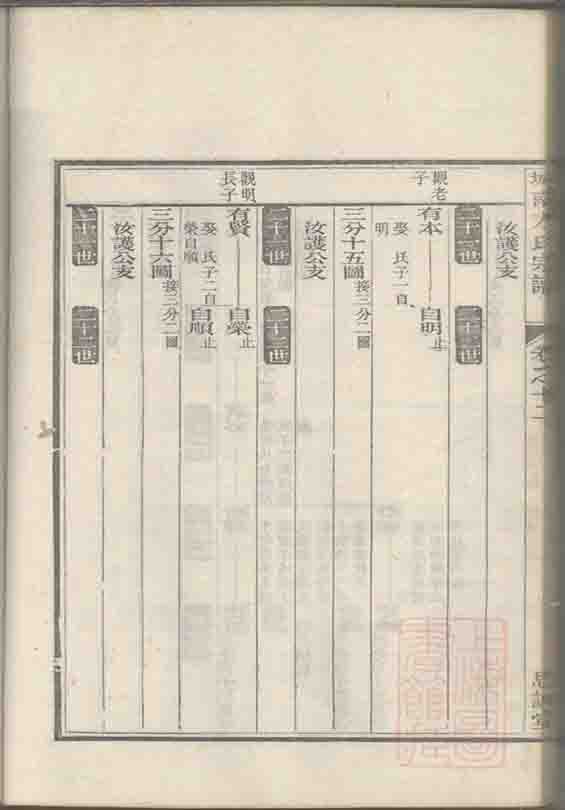 氏宗譜
卷之十二
思
堂
汝護公支
二十二世
二十三世
觀老子
有本
自明止
娶 氏子一自明
三分十五圖接三分二圖
汝護公支
二十二世
二十三世
觀明長子
有賢
自榮止
娶 氏子二自榮自順
自順止
三分十六圖接三分二圖
汝護公支
二十二世
二十三世